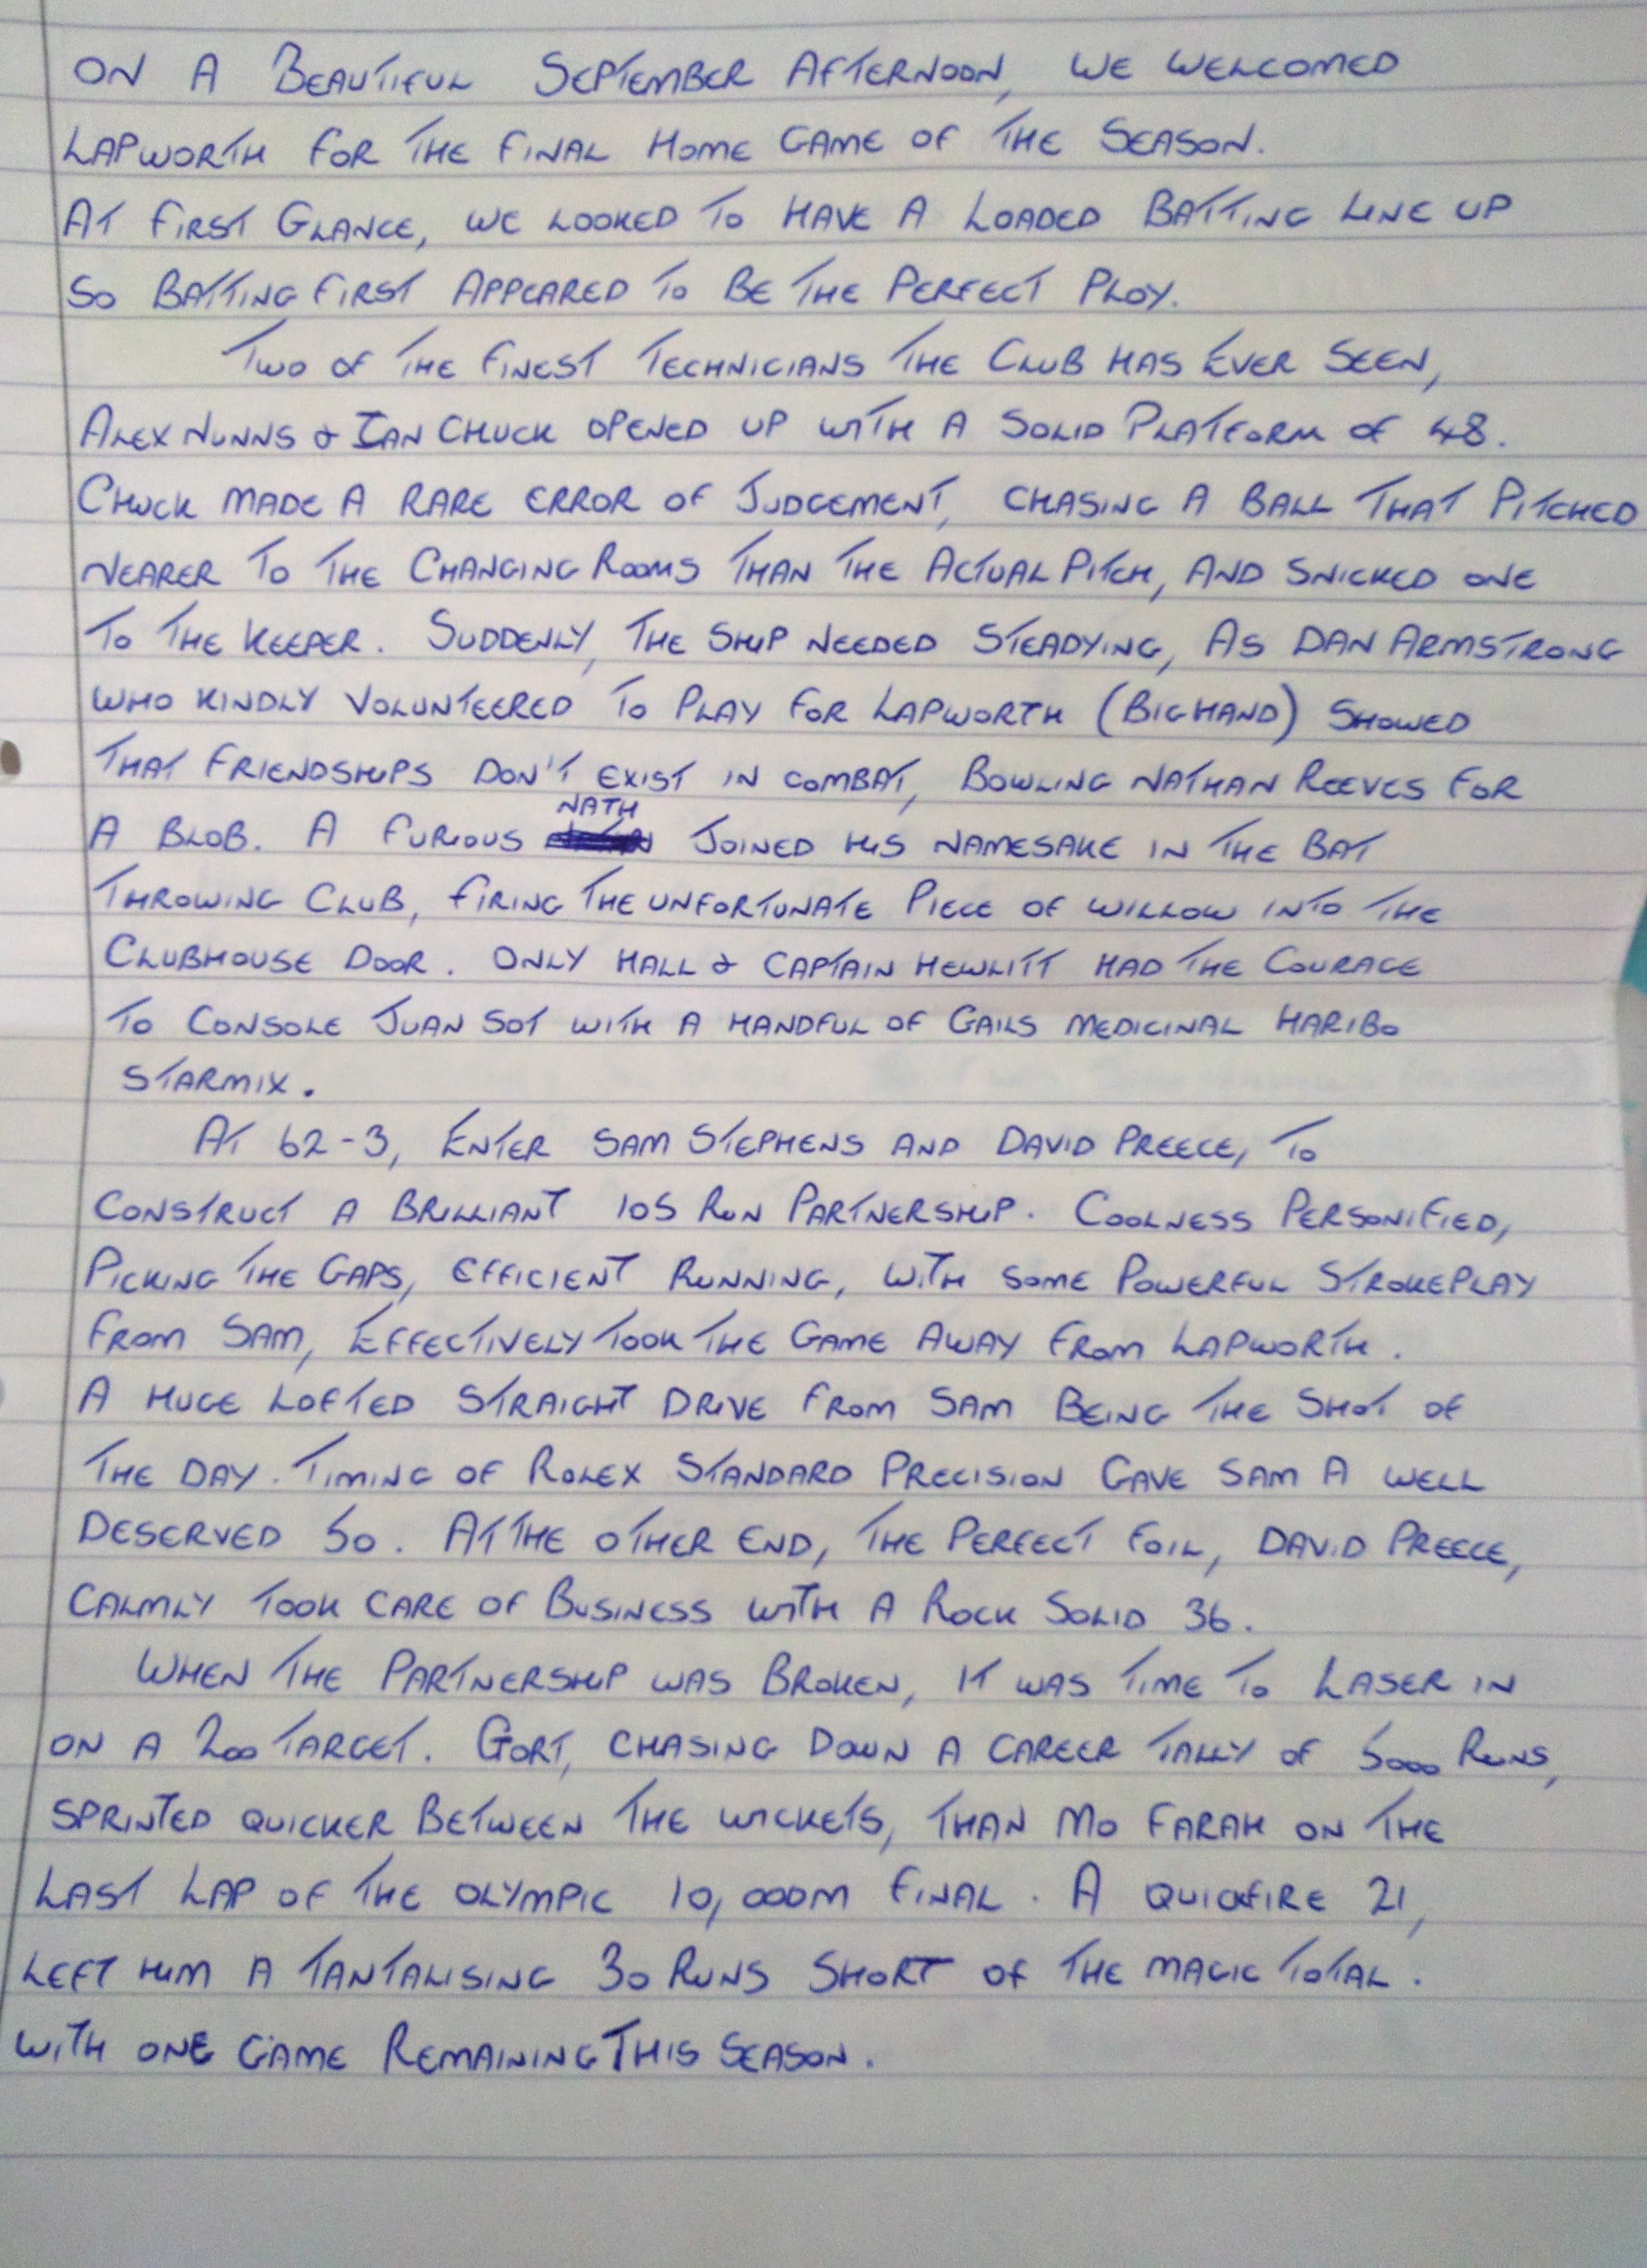 ON A BEAUTIFUL SEPTEMBER AFTERNOON, WE WELCOMED
LAPWORTH FOR THE FINAL HOME GAME OF THE SEASON.
AT FIRST GLANCE, WE LOOKED TO HAVE A LOADED BATTING LINE UP
SO BATTING FIRST APPEARED TO BE THE PERFECT PLOY.
TWO OF THE FINEST TECHNICIANS THE CLUB HAS EVER SEEN,
ALEX NUNNS & IAN CHUCK OPENED UP WITH A SOLID PLATFORM OF 48.
CHUCK MADE A RARE ERROR OF JUDGEMENT, CHASING A BALL THAT PITCHED
NEARER TO THE CHANGING ROOMS THAN THE ACTUAL PITCH, AND SNICKED ONE
TO THE KEEPER. SUDDENLY, THE SHIP NEEDED STEADYING, AS DAN ARMSTRONG
WHO KINDLY VOLUNTEERED TO PLAY FOR LAPWORTH (BIG HAND) SHOWED
THAT FRIENDSHIPS DON'T EXIST IN COMBAT, BOWLING NATHAN REEVES FOR
A BLOB. A FURIOUS NATH JOINED HIS NAMESAKE IN THE BAT
THROWING CLUB, FIRING THE UNFORTUNATE PIECE OF WILLOW INTO THE
CLUBHOUSE DOOR. ONLY HALL & CAPTAIN HEWLITT HAD THE COURAGE
TO CONSOLE JUAN SOT WITH A HANDFUL OF GAILS MEDICINAL HARIBO
STARMIX.
AT 62-3, ENTER SAM STEPHENS AND DAVID PREECE, TO
CONSTRUCT A BRILLIANT 105 RUN PARTNERSHIP. COOLNESS PERSONIFIED,
PICKING THE GAPS, EFFICIENT RUNNING, WITH SOME POWERFUL STROKEPLAY
FROM SAM, EFFECTIVELY TOOK THE GAME AWAY FROM LAPWORTH.
A HUGE LOFTED STRAIGHT DRIVE FROM SAM BEING THE SHOT OF
THE DAY. TIMING OF ROLEX STANDARD PRECISION GAVE SAM A WELL
DESERVED 50. AT THE OTHER END, THE PERFECT FOIL, DAVID PREECE,
CALMLY TOOK CARE OF BUSINESS WITH A ROCK SOLID 36.
WHEN THE PARTNERSHIP WAS BROKEN, IT WAS TIME TO LASER IN
ON A 200 TARGET. GORT, CHASING DOWN A CAREER TALLY OF 5000 RUNS,
SPRINTED QUICKER BETWEEN THE WICKETS, THAN MO FARAH ON THE
LAST LAP OF THE OLYMPIC 10,000M FINAL. A QUICKFIRE 21,
LEFT HIM A TANTALISING 30 RUNS SHORT OF THE MAGIC TOTAL.
WITH ONE GAME REMAINING THIS SEASON.